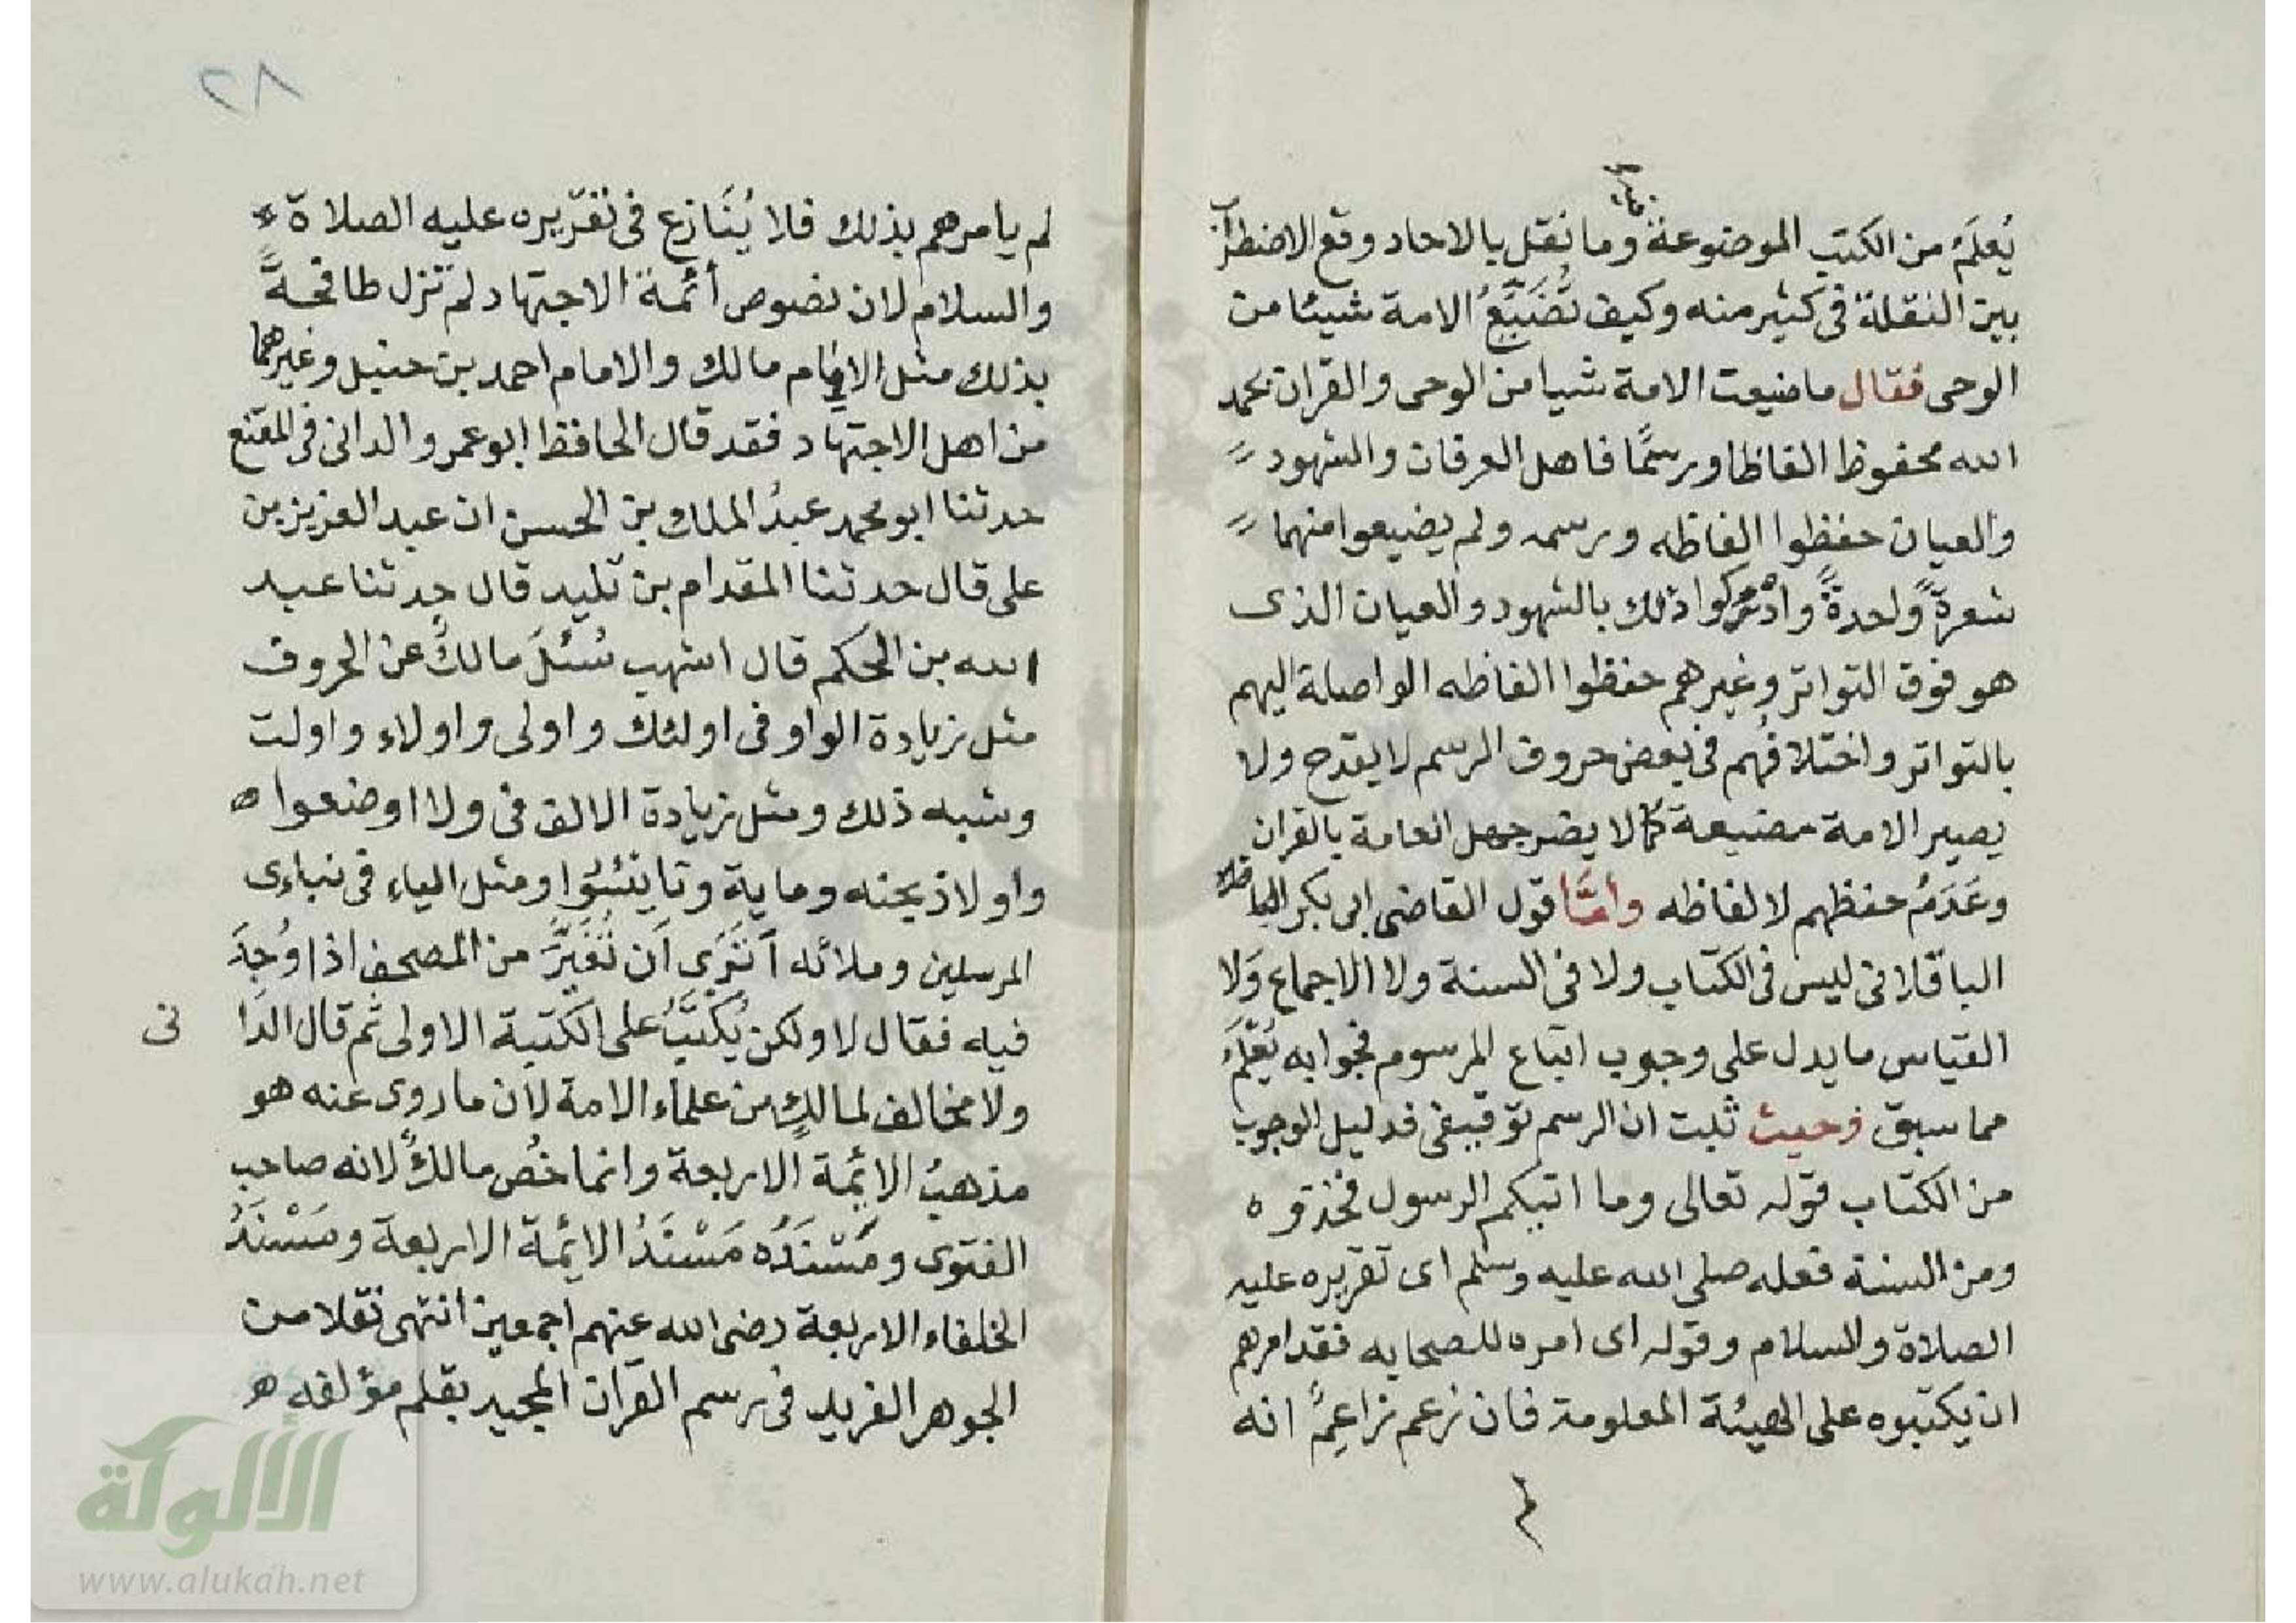 يُعلَمُ من الكتب الموضوعة وما نقل بالاحاد وقع الاضطراب
بين النقلة فى كثير منه وكيف تُضَيِّعُ الامة شيئا من
الوحى فقال ما ضيعت الامة شيا من الوحى والقران بحمد
الله محفوظ الفاظا ورسمًا فاهل العرفان والشهود
والعيان حفظوا الفاظه ورسمه ولم يضيعوا منهما
شعرةً واحدةً وادركوا ذلك بالشهود والعيان الذى
هو فوق التواتر وغيرهم حفظوا الفاظه الواصلة اليهم
بالتواتر واختلافُهم فى بعض حروف الرسم لا يقدح ولا
يصير الامة مضيعة كما لا يضر جهل العامة بالقران
وعَدَمُ حفظهم لالفاظه وأمَّا قول القاضى ابى بكر
الباقلانى ليس فى الكتاب ولا فى السنة ولا الاجماع وَلا
القياس ما يدل على وجوب اتباع المرسوم فجوابه يُعْلَمُ
مما سبق فحيث ثبت ان الرسم توقيفى فدليل الوجوب
من الكتاب قوله تعالى وما اتيكم الرسول فخذوه
ومن السنة فعله صلى الله عليه وسلم اى تقريره عليه
الصلاة والسلام وقوله اى امره للصحابه فقد امرهم
ان يكتبوه على الهيئة المعلومة فان زعم زاعِمٌ انه
٨٢
لم يامرهم بذلك فلا يُنَازِع فى تقرّيره عليه الصلاة
والسلام لان نصوص أئمة الاجتهاد لم تزل طافحةً
بذلك مثل الامام مالك والامام احمد بن حنبل وغيرهما
من اهل الاجتهاد فقد قال الحافظ ابو عمرو الدانى فى المقنع
حدثنا ابو محمد عبدُ الملك بن الحسن ان عبد العزيز بن
على قال حدثنا المقدام بن تليد قال حدثنا عبد
الله بن الحكم قال اشهب سُئلَ مالكٌ عن الحروف
مثل زيادة الواو فى اولئك واولى واولاء واولت
وشبه ذلك ومثل زيادة الالف فى ولا اوضعوا
واولاذبحنه وماية وتايئسوا ومثل الياء فى نباءى
المرسلين وملائه أتَرَى أن تُغَيَّرَ من المصحف اذا وُجِدَ
فيه فقال لا ولكن يُكتَبُ على الكتبة الاولى ثم قال الدا نى
ولا مخالف لمالكٍ من علماء الامة لان ما روى عنه هو
مذهبُ الايمة الاربعة وانما خُص مالكٌ لانه صاحب
الفتوى ومَسْنَدُه مَسْنَدُ الايمة الاربعة ومَسْنَدُ
الخلفاء الاربعة رضى الله عنهم اجمعين انتهى نقلا من
الجوهر الفريد فى رسم القرآن المجيد بقلم مؤلفه
الألوكة
www.alukah.net